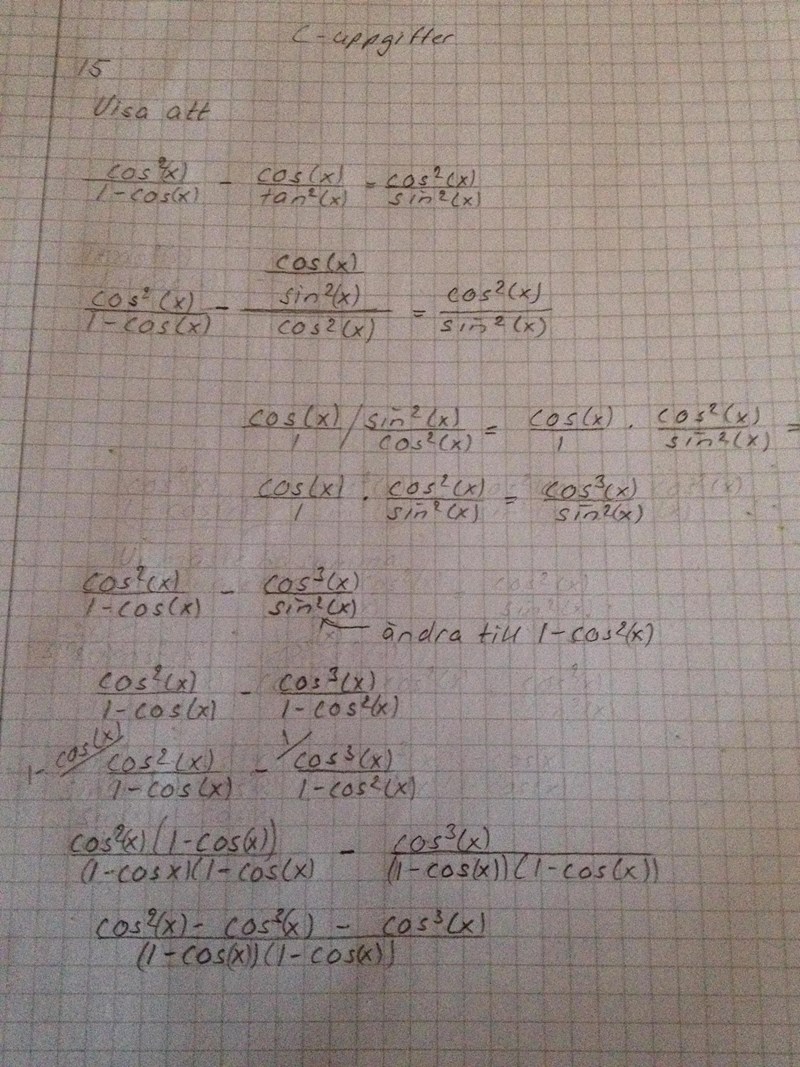 C-uppgifter
15
Visa att
cos²(x)/1-cos(x) - cos(x)/tan²(x) = cos²(x)/sin²(x)
cos²(x)/1-cos(x) - cos(x)/sin²(x)/cos²(x) = cos²(x)/sin²(x)
cos(x)/1 / sin²(x)/cos²(x) = cos(x)/1 · cos²(x)/sin²(x) =
cos(x)/1 · cos²(x)/sin²(x) = cos³(x)/sin²(x)
cos²(x)/1-cos(x) - cos³(x)/sin²(x)
← ändra till 1-cos²(x)
cos²(x)/1-cos(x) - cos³(x)/1-cos²(x)
1-cos(x)/ cos²(x)/1-cos(x) - 1/ cos³(x)/1-cos²(x)
cos²(x)(1-cos(x))/(1-cosx)(1-cos(x) - cos³(x)/(1-cos(x))(1-cos(x))
cos²(x)- cos³(x) - cos³(x)/(1-cos(x))(1-cos(x))